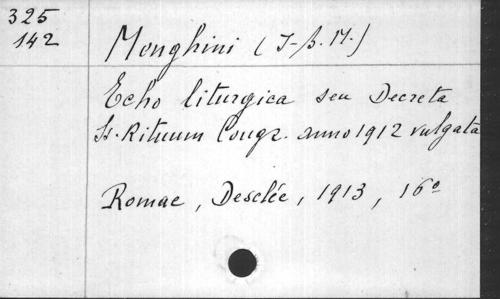 325
142
Monghini (J-B. M.)
Echo liturgica seu Decreta
Ss. Rituum Congr. anno 1912 vulgata
Romae, Desclée, 1913, 16º